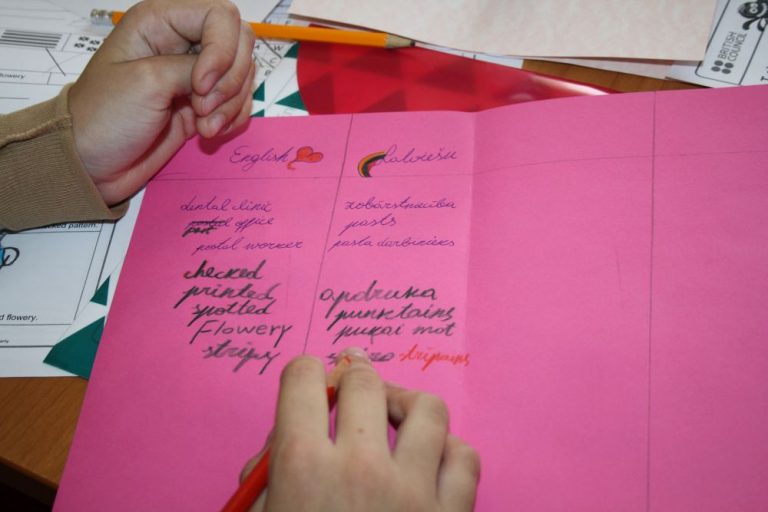 BRITISH COUNCIL
flowery
English
Latviešu
dental clinic
zobārstniecība
post office
pasts
postal worker
pasta darbinieks
checked
printed
apdruka
spotted
punktains
Flowery
puķai
stripy
strīpains
cked pattern.
d flowery.